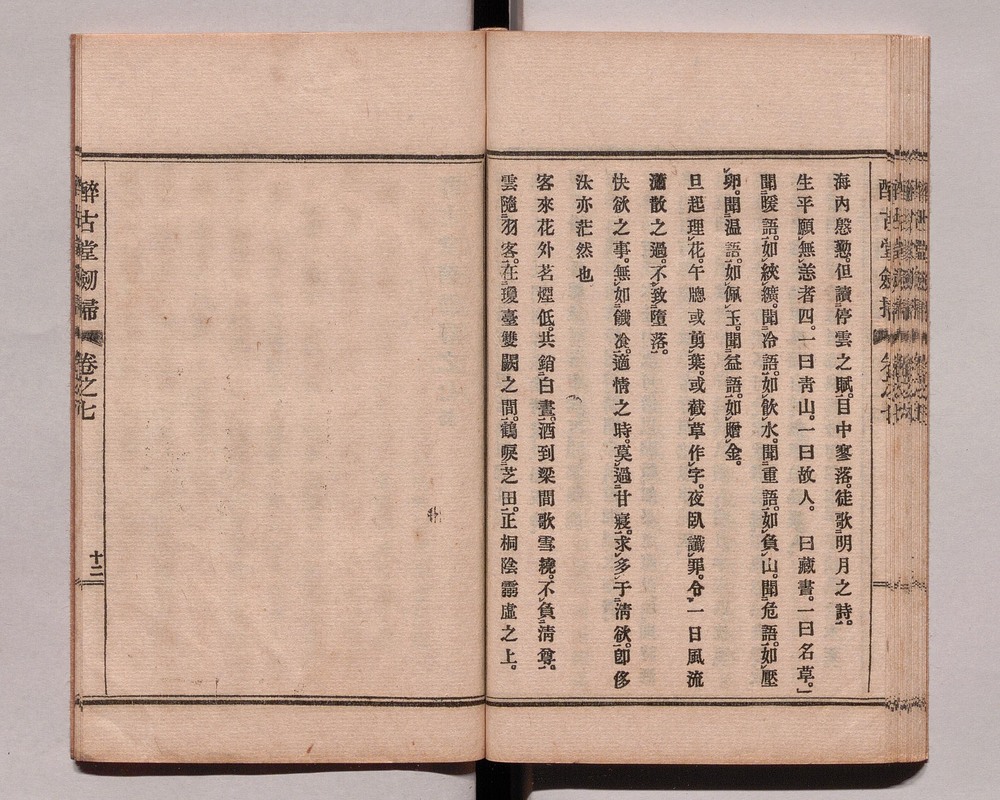 海內慇懃。但讀停雲之賦。目中寥落。徒歌明月之詩。
生平願無恙者四。一曰青山。一曰故人。　曰藏書。一曰名草。
聞暖語。如綊纊。聞冷語。如飲水。聞重語。如負山。聞危語。如壓
卵。聞温語。如佩玉。聞益語。如贈金。
旦起理花。午牕或剪葉。或截草作字。夜臥讖罪。令一日風流
瀟散之過。不致墮落。
快欲之事。無如饑飡。適情之時。莫過甘寢。求多于淸欲。卽侈
汰亦茫然也
客來花外茗煙低。共銷白晝。酒到梁間歌雪繞。不負淸尊。
雲隨羽客。在瓊臺雙闕之間。鶴唳芝田。正桐陰靈虛之上。
醉古堂劒掃　卷之七　十二